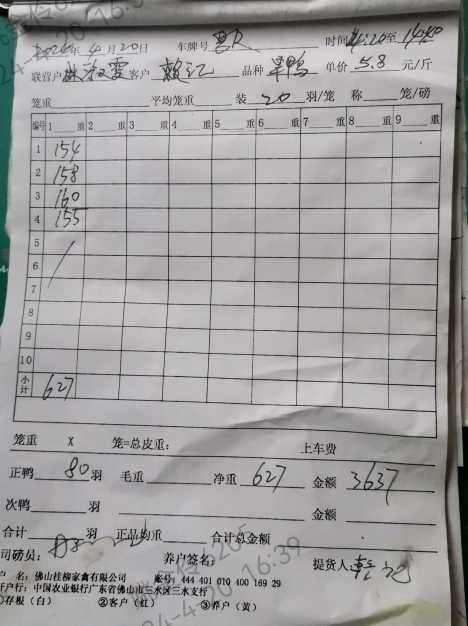 2024年4月20日 车牌号 时间 14:20至14:40
联营户 客户 赖记 品种 旱鸭 单价 5.8 元/斤
笼重 平均笼重 装 20 羽/笼 称 笼/磅
编号 1 重 2 重 3 重 4 重 5 重 6 重 7 重 8 重 9 重
1 154
2 158
3 160
4 155
5
6
7
8
9
10
小计 627
笼重 X 笼=总皮重: 上车费
正鸭 80 羽 毛重 净重 627 金额 3637
次鸭 羽 金额
合计 羽 正品均重 合计总金额
司磅员: 养户签名: 提货人:
户名:佛山桂柳家禽有限公司 账号:444 401 010 400 169 29
开户行:中国农业银行广东省佛山市三水区三水支行
①存根(白) ②客户(红) ③养户(黄)